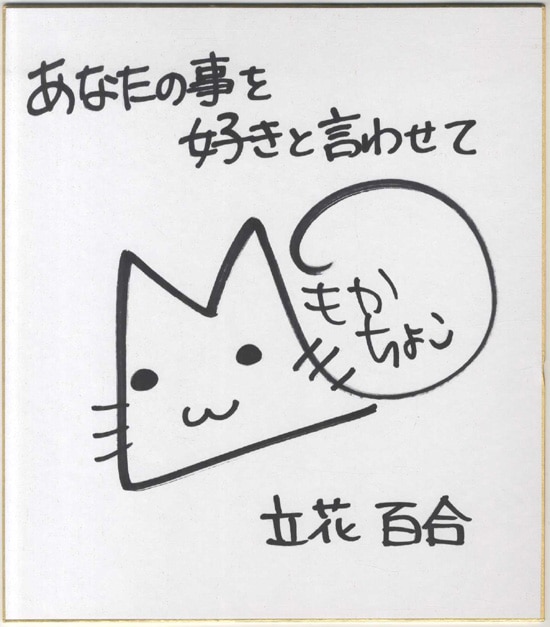 あなたの事を
好きと言わせて
もか
ちょこ
立花 百合